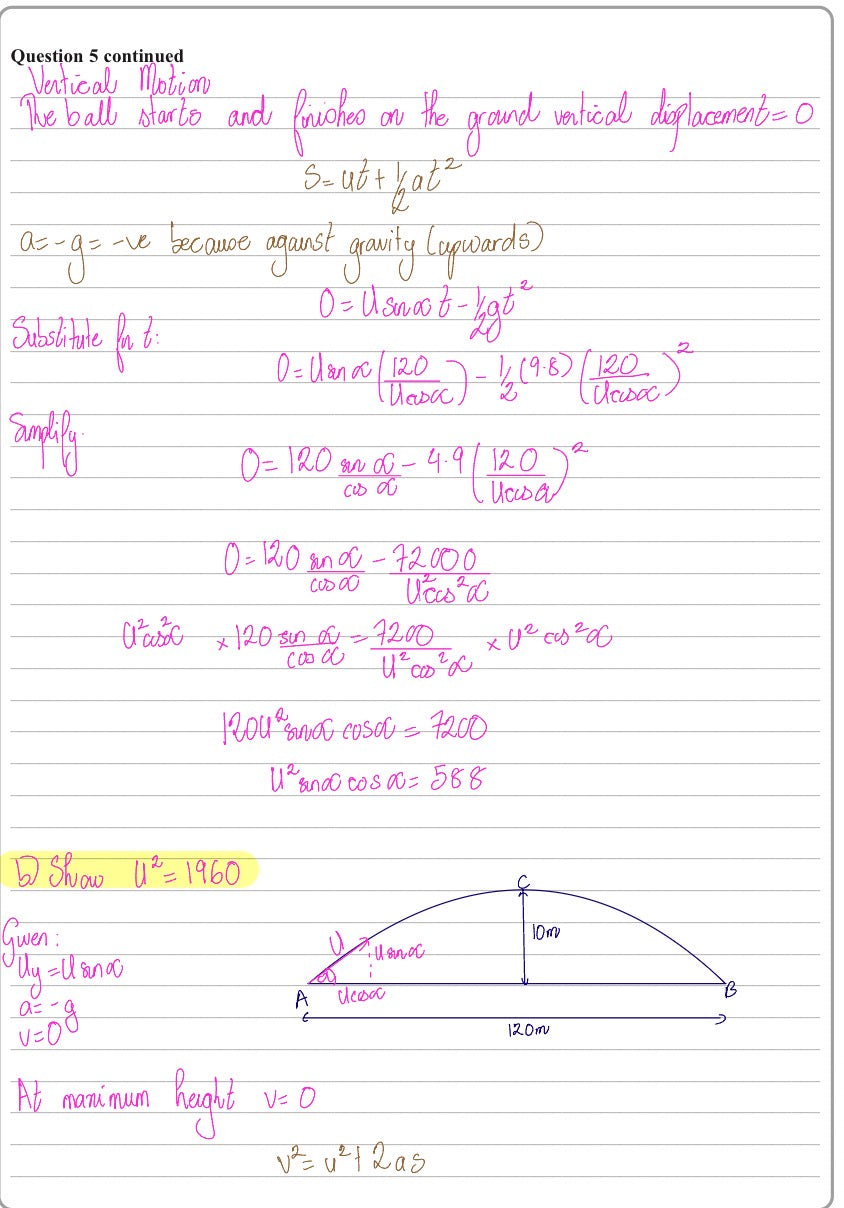 Question 5 continued
Vertical Motion
The ball starts and finishes on the ground vertical displacement = 0
S = ut + 1/2 at²
a = -g = -ve because against gravity (upwards)
0 = U sin α t - 1/2 gt²
Substitute for t:
0 = U sin α (120/U cos α) - 1/2 (9.8) (120/U cos α)²
Simplify:
0 = 120 sin α/cos α - 4.9 (120/U cos α)²
0 = 120 sin α/cos α - 72000/U² cos² α
U² cos² α × 120 sin α/cos α = 7200/U² cos² α × U² cos² α
120U² sin α cos α = 7200
U² sin α cos α = 588
b) Show U² = 1960
C
Given:
10m
U
U sin α
Uy = U sin α
α
A
U cos α
B
a = -g
v = 0
120m
At maximum height v = 0
v² = u² + 2as